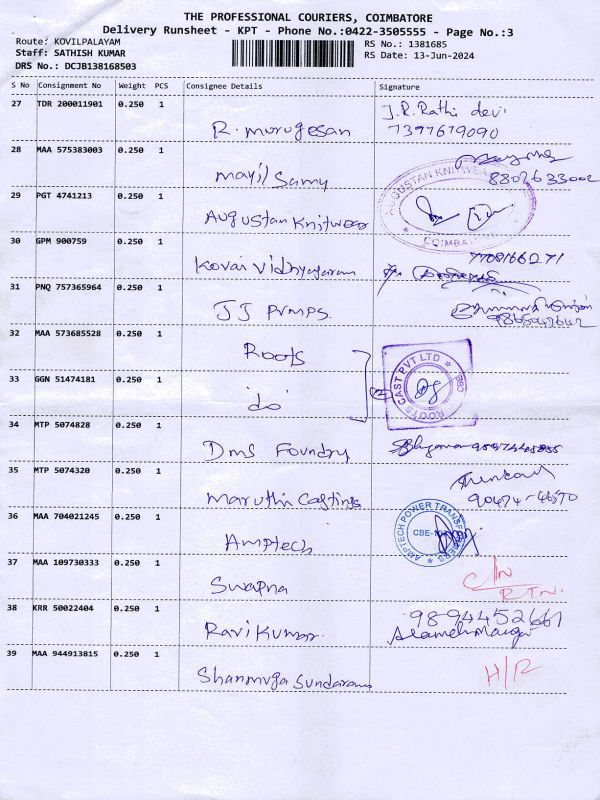 THE PROFESSIONAL COURIERS, COIMBATORE
Delivery Runsheet - KPT - Phone No.:0422-3505555 - Page No.:3
Route: KOVILPALAYAM
RS No.: 1381685
Staff: SATHISH KUMAR
RS Date: 13-Jun-2024
DRS No.: DCJB138168503
S No Consignment No Weight PCS Consignee Details Signature
27 TDR 200011901 0.250 1
R. Murugesan J.R.Rathi devi
7397679090
28 MAA 575383003 0.250 1
Mayil Samy 8802633002
29 PGT 4741213 0.250 1
Augustan Knitwear AUGUSTAN KNITWEAR
COIMBATORE
30 GPM 900759 0.250 1
Kovai Vidhyajaram 7708166271
31 PNQ 757365964 0.250 1
JJ PUMPS
32 MAA 573685528 0.250 1
Roots
ROOTS CAST PVT LTD CBE
33 GGN 51474181 0.250 1
do
34 MTP 5074828 0.250 1
Dms Foundry
35 MTP 5074320 0.250 1
Maruthi Castings
36 MAA 704021245 0.250 1
Amptech AMPTECH POWER TRANSFORMERS
37 MAA 109730333 0.250 1
Swapna C/N
RTN.
38 KRR 50022404 0.250 1
Ravi Kumar. 9894452661
39 MAA 944913815 0.250 1
Shanmuga Sundaram H/R